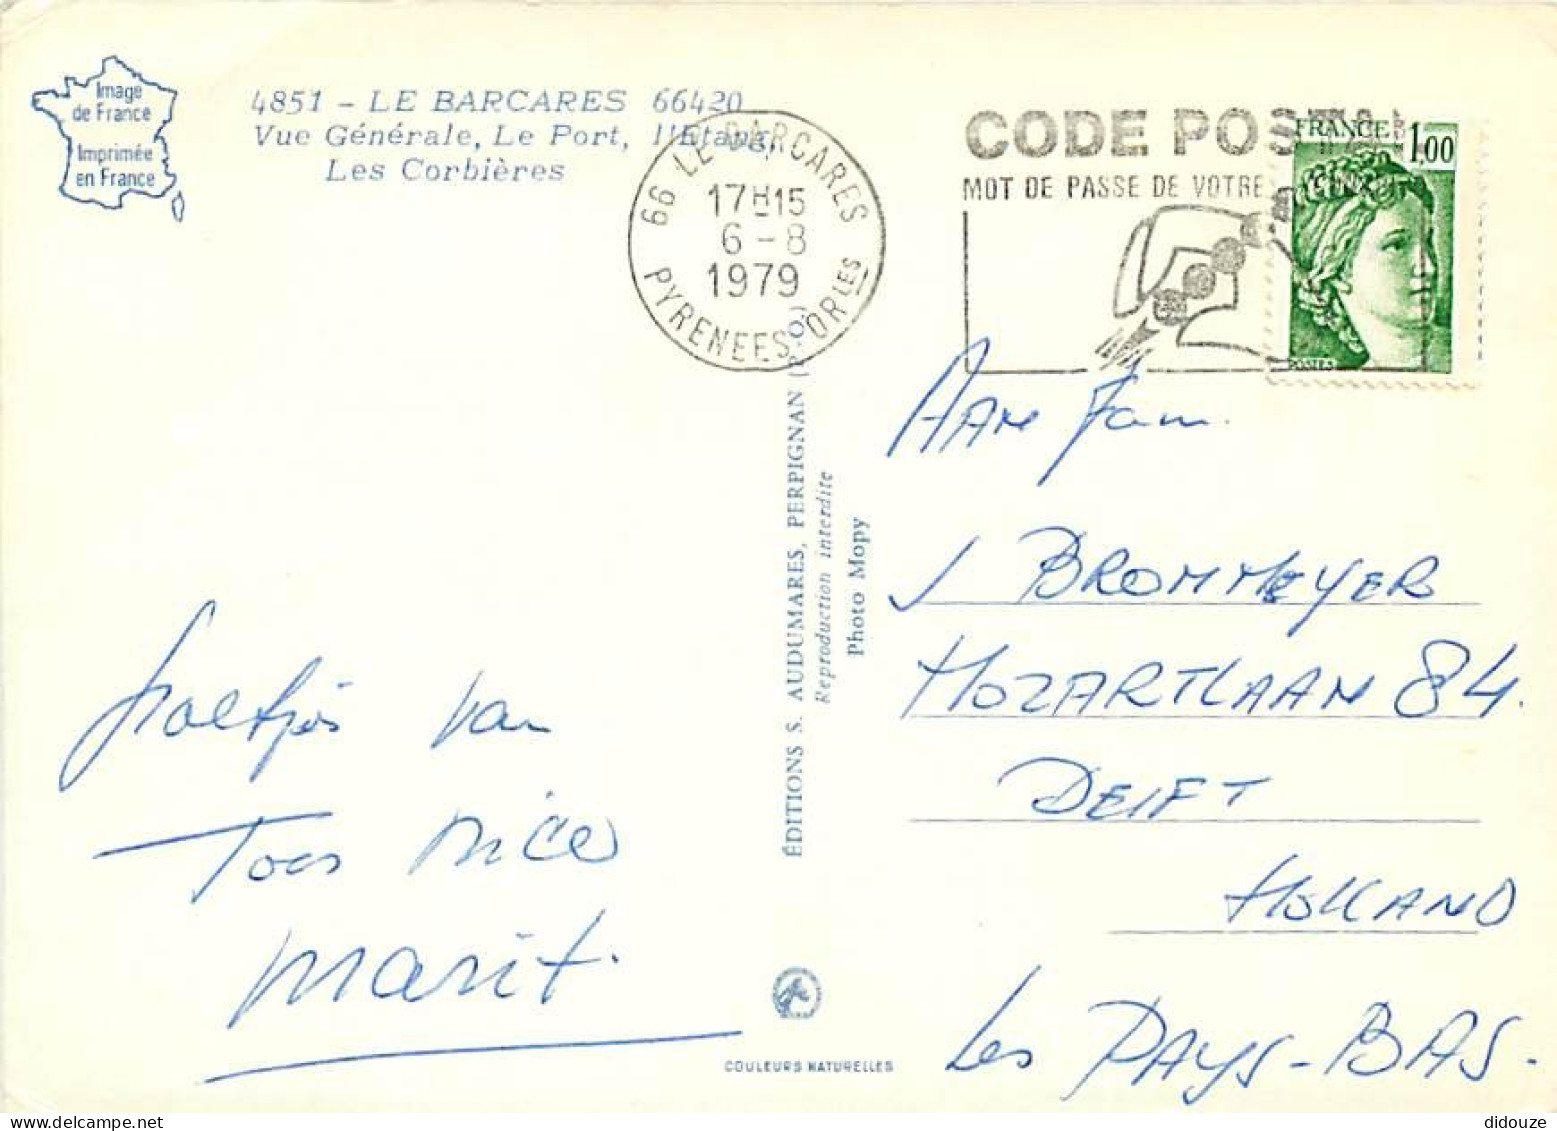 Image
de France
Imprimée
en France
4851 - LE BARCARES 66420
Vue Générale, Le Port, l'Etang,
Les Corbières
66 LE BARCARES
17H15
6-8
1979
PYRENEES ORLES
CODE POSTAL
MOT DE PASSE DE VOTRE
FRANCE 1,00
POSTES
ÉDITIONS S. AUDUMARES, PERPIGNAN (P.-O.)
Reproduction interdite
Photo Mopy
AAN fam.
J BROMMEYER
MOZARTLAAN 84.
DELFT
HOLLAND
Les PAYS-BAS.
Groetjes van
Toos Nico
Marit.
COULEURS NATURELLES
didouze